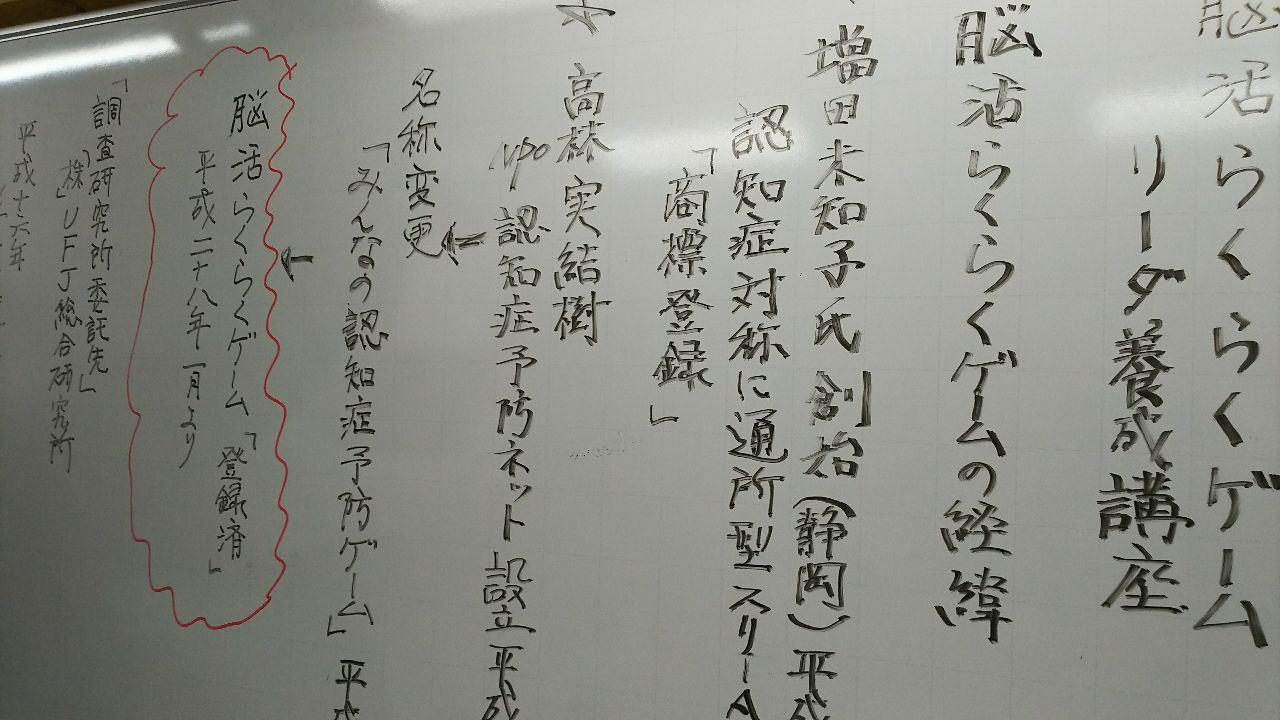 脳活らくらくゲーム
リーダ養成講座
脳活らくらくゲームの経緯
増田未知子氏創始(静岡)平成
認知症対称に通所型スリーA
「商標登録」
高林実結樹
NPO認知症予防ネット設立平成
名称変更
「みんなの認知症予防ゲーム」平成
脳活らくらくゲーム「登録済」
平成二十八年一月より
「調査研究所委託先」
「株」UFJ総合研究所
平成十六年